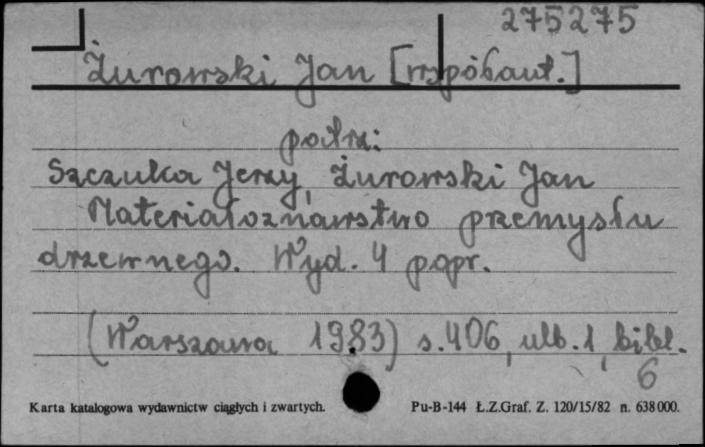 275275
Żurowski Jan [współaut.]
patrz:
Szczuka Jerzy, Żurowski Jan
Materiałoznawstwo przemysłu
drzewnego. Wyd. 4 popr.
(Warszawa 1983) s. 406, ulb. 1, bibl.
6
Karta katalogowa wydawnictw ciągłych i zwartych. Pu-B-144 Ł.Z.Graf. Z. 120/15/82 n. 638000.